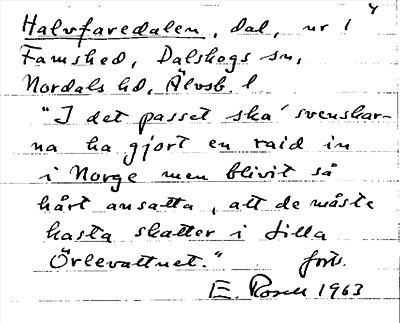 4
Halvfaredalen, dal, nr 1
Famshed, Dalskogs sn,
Nordals hd, Älvsb. l
"I det passet ska' svenskar-
na ha gjort en raid in
i Norge men blivit så
hårt ansatta, att de måste
kasta skatter i Lilla
Örlevattnet." forts.
E. Rosell 1963